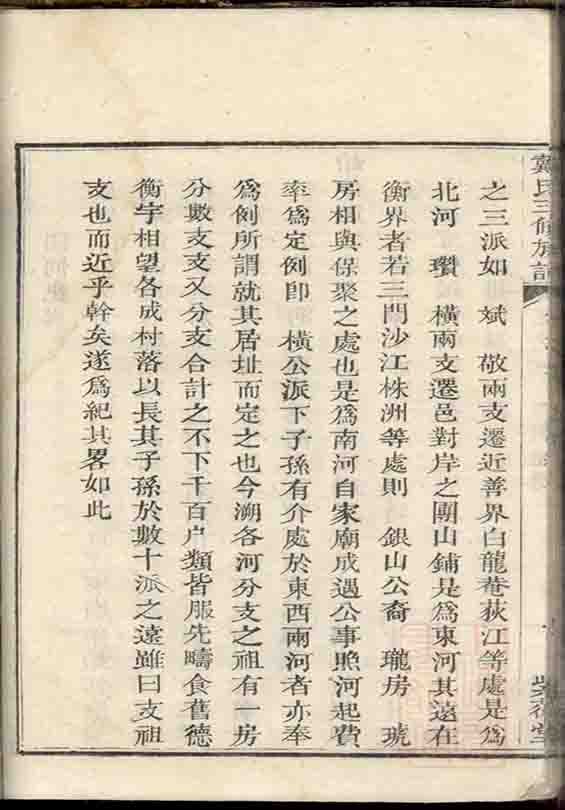 戴氏三修族譜
之三派如 斌 敬兩支遷近善界白龍菴荻江等處是爲
北河 瓚 橫兩支遷邑對岸之團山鋪是爲東河其遠在
衡界者若三門沙江株洲等處則 銀山公裔 瓏房 琥
房相與保聚之處也是爲南河自家廟成遇公事照河起費
率爲定例卽 橫公派下子孫有介處於東西兩河者亦奉
爲例所謂就其居址而定之也今溯各河分支之祖有一房
分數支支又分支合計之不下千百户類皆服先疇食舊德
衡宇相望各成村落以長其子孫於數十派之遠雖曰支祖
支也而近乎幹矣遂爲紀其畧如此
堂